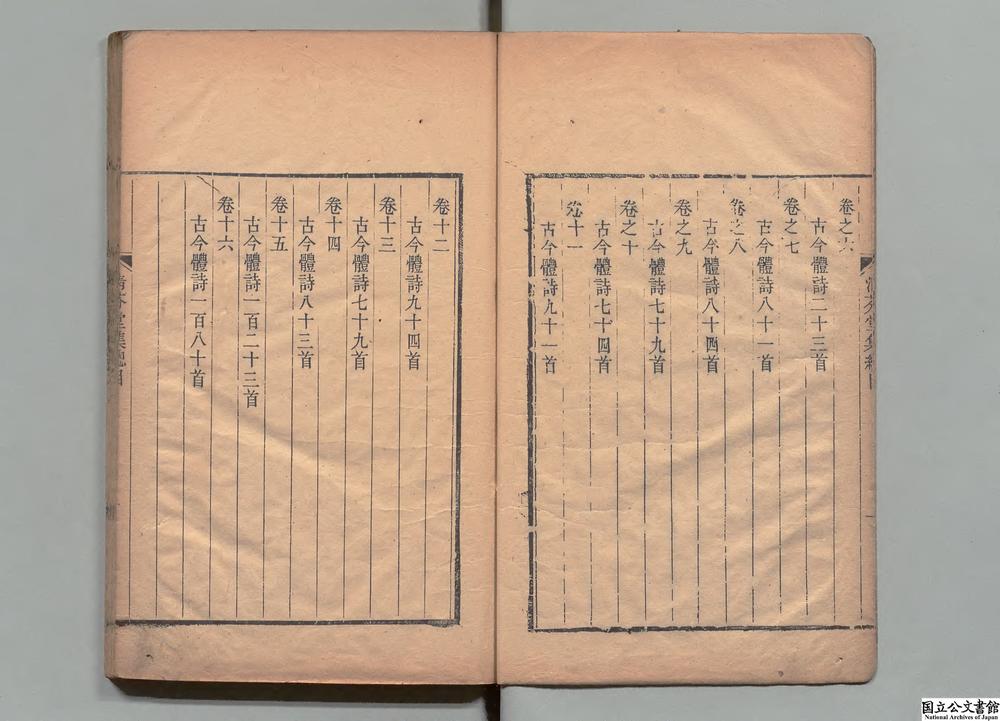 卷之六
古今體詩二十三首
卷之七
古今體詩八十一首
卷之八
古今體詩八十四首
卷之九
古今體詩七十九首
卷之十
古今體詩七十四首
卷十一
古今體詩九十一首
卷十二
古今體詩九十四首
卷十三
古今體詩七十九首
卷十四
古今體詩八十三首
卷十五
古今體詩一百二十三首
卷十六
古今體詩一百八十首
清芬堂集總目
国立公文書館
National Archives of Japan